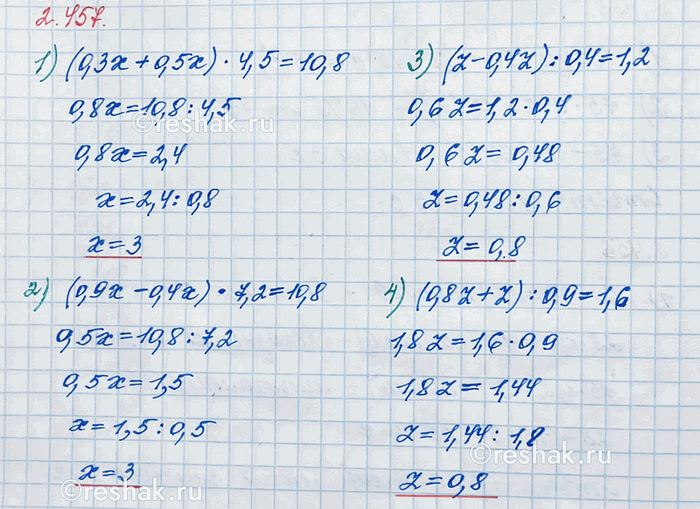 2.457.
1) (0,3x+0,5x)·4,5=10,8
0,8x=10,8:4,5
0,8x=2,4
x=2,4:0,8
x=3
2) (0,9x-0,4x)·7,2=10,8
0,5x=10,8:7,2
0,5x=1,5
x=1,5:0,5
x=3
3) (z-0,4z):0,4=1,2
0,6z=1,2·0,4
0,6z=0,48
z=0,48:0,6
z=0,8
4) (0,8z+z):0,9=1,6
1,8z=1,6·0,9
1,8z=1,44
z=1,44:1,8
z=0,8
©reshak.ru
©reshak.ru
©reshak.ru